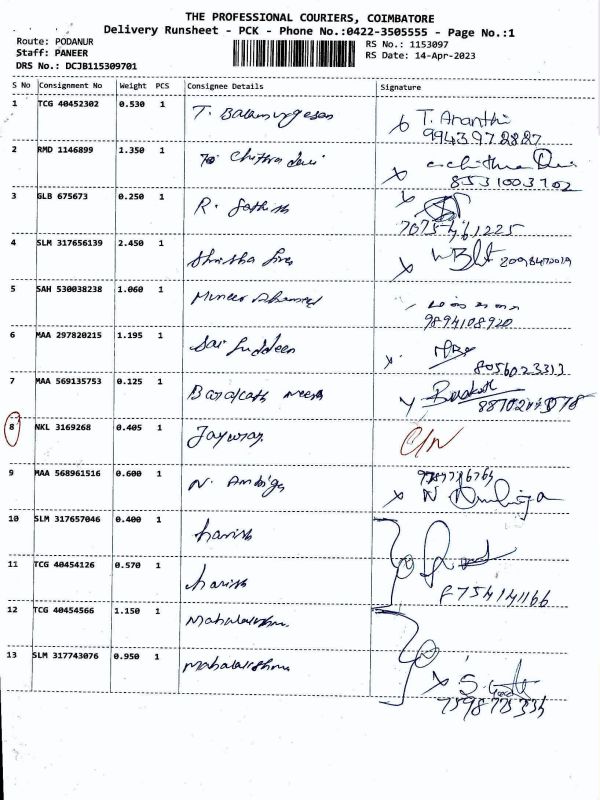 THE PROFESSIONAL COURIERS, COIMBATORE
Delivery Runsheet - PCK - Phone No.:0422-3505555 - Page No.:1
Route: PODANUR
Staff: PANEER
DRS No.: DCJB115309701
RS No.: 1153097
RS Date: 14-Apr-2023
S No Consignment No Weight PCS Consignee Details Signature
1 TCG 40452302 0.530 1 T. Balamurgesan T. Ananthi
9943972827
2 RMD 1146899 1.350 1 Chithra devi
8531003702
3 GLB 675673 0.250 1 R. Sathish
7075461225
4 SLM 317656139 2.450 1
5 SAH 530038238 1.060 1 Muneer Ahamed
9894108920
6 MAA 297820215 1.195 1
8056023313
7 MAA 569135753 0.125 1
8 NKL 3169268 0.405 1 Jayuray C/N
9 MAA 568961516 0.600 1 N. Ambiga N
10 SLM 317657046 0.400 1 harish
11 TCG 40454126 0.570 1 harish
12 TCG 40454566 1.150 1 Mahalakshmi
13 SLM 317743076 0.950 1 Mahalakshmi